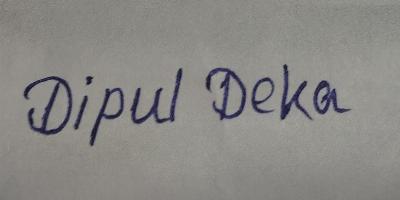 Dipul Deka